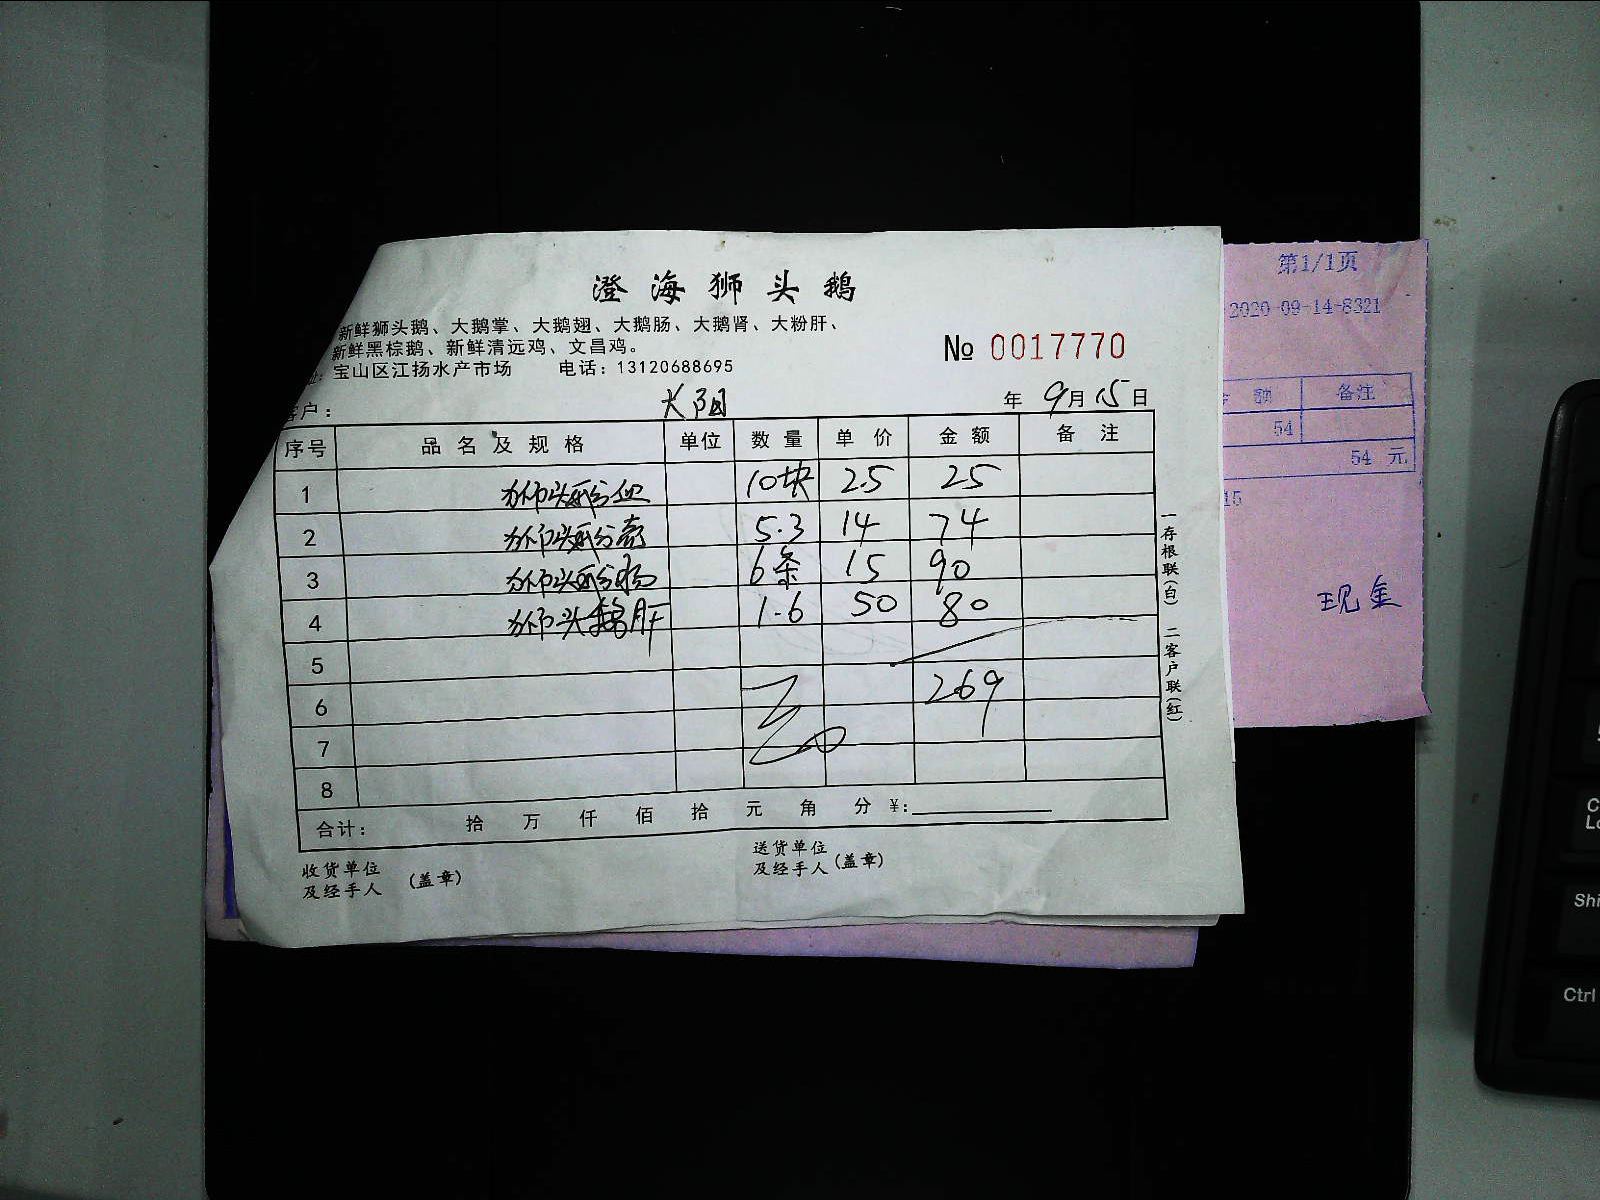 澄海狮头鹅
新鲜狮头鹅、大鹅掌、大鹅翅、大鹅肠、大鹅肾、大粉肝、
新鲜黑棕鹅、新鲜清远鸡、文昌鸡。
址：宝山区江扬水产市场 电话：13120688695
№ 0017770
客户： 年 9月15日
序号 品名及规格 单位 数量 单价 金额 备注
1 狮头鹅血 10块 2.5 25
2 狮头鹅 5.3 14 74
3 狮头鹅肠 6条 15 90
4 狮头鹅肝 1.6 50 80
5
6 269
7
8
合计： 拾 万 仟 佰 拾 元 角 分 ¥：
收货单位
及经手人 （盖章）
送货单位
及经手人（盖章）
一存根联（白） 二客户联（红）
第1/1页
2020-09-14-8321
额 备注
54
54 元
15
现金